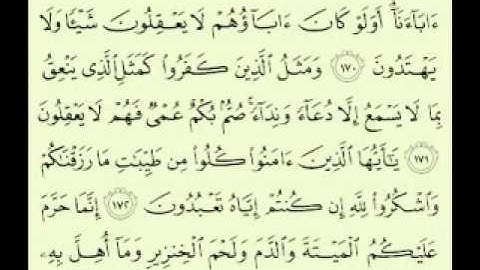 ءَابَآءَنَآۗ أَوَلَوۡ كَانَ ءَابَآؤُهُمۡ لَا يَعۡقِلُونَ شَيۡـٔٗا وَلَا
يَهۡتَدُونَ ١٧٠ وَمَثَلُ ٱلَّذِينَ كَفَرُواْ كَمَثَلِ ٱلَّذِي يَنۡعِقُ
بِمَا لَا يَسۡمَعُ إِلَّا دُعَآءٗ وَنِدَآءٗۚ صُمُّۢ بُكۡمٌ عُمۡيٞ فَهُمۡ لَا يَعۡقِلُونَ
١٧١ يَـٰٓأَيُّهَا ٱلَّذِينَ ءَامَنُواْ كُلُواْ مِن طَيِّبَٰتِ مَا رَزَقۡنَٰكُمۡ
وَٱشۡكُرُواْ لِلَّهِ إِن كُنتُمۡ إِيَّاهُ تَعۡبُدُونَ ١٧٢ إِنَّمَا حَرَّمَ
عَلَيۡكُمُ ٱلۡمَيۡتَةَ وَٱلدَّمَ وَلَحۡمَ ٱلۡخِنزِيرِ وَمَآ أُهِلَّ بِهِۦ